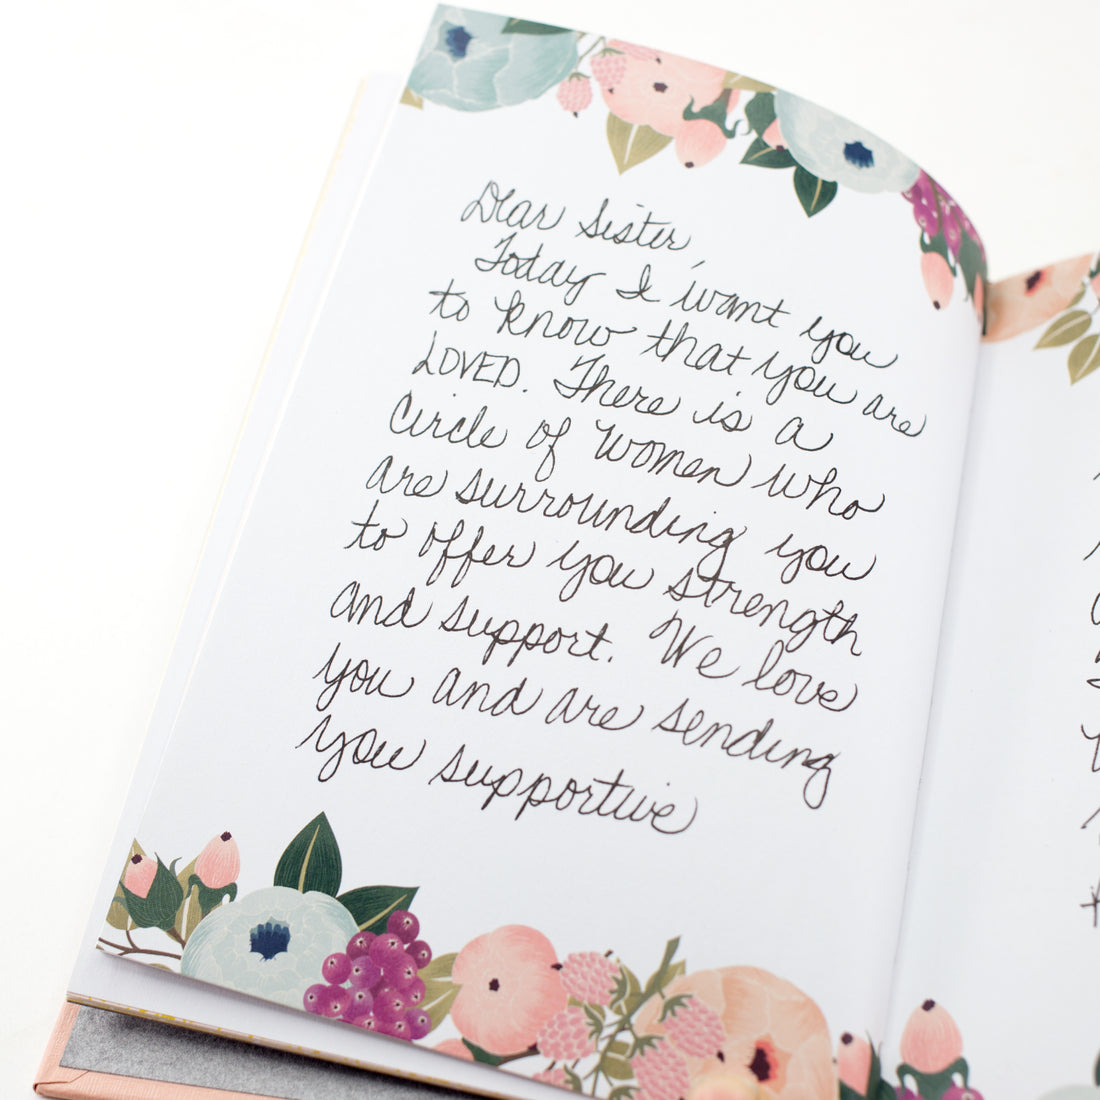 Dear Sister,
Today I want you
to know that you are
LOVED. There is a
circle of women who
are surrounding you
to offer you strength
and support. We love
you and are sending
you supportive